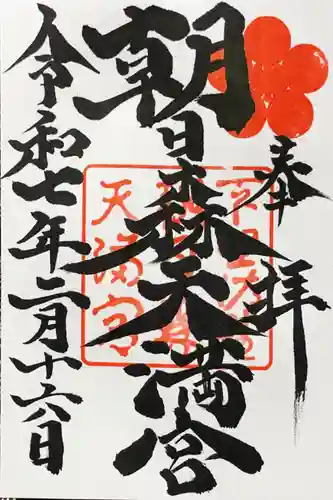 奉拝
朝日森天満宮
令和七年二月十六日
天満宮